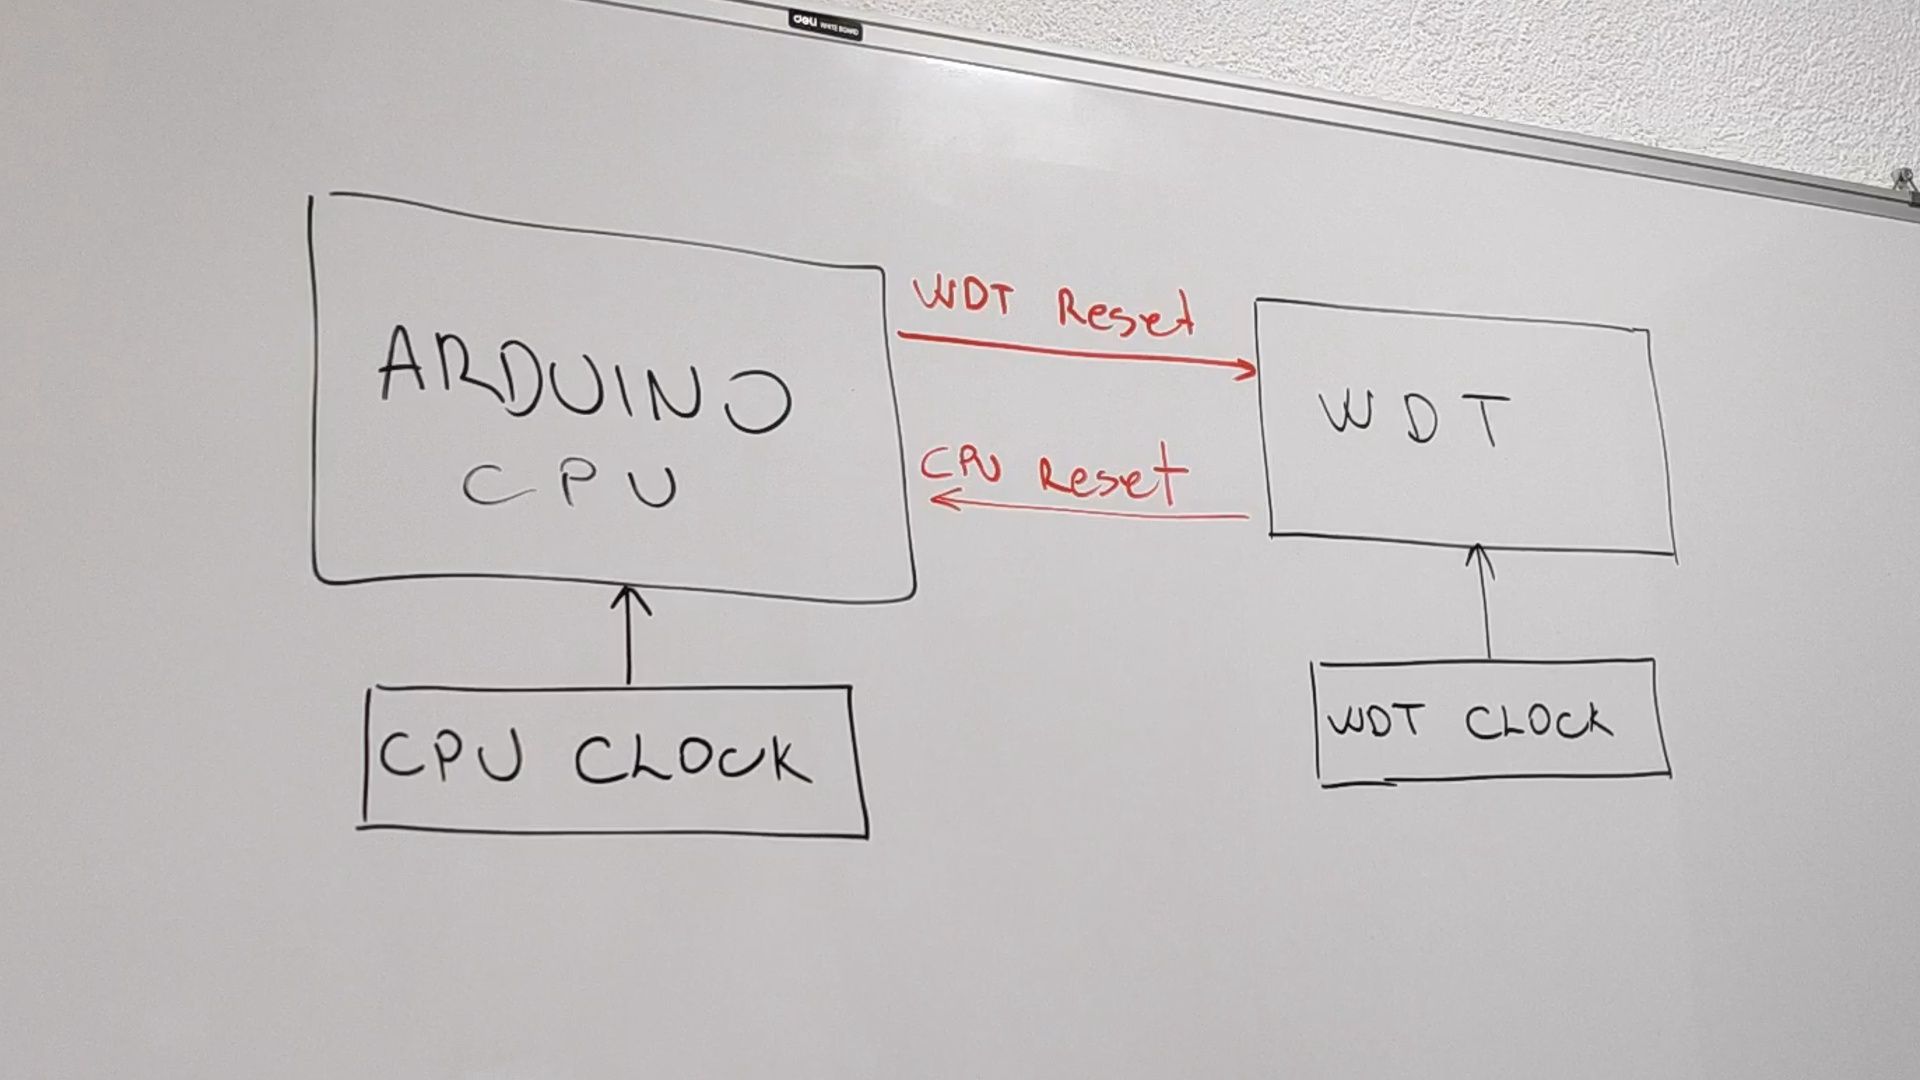 deli WHITE BOARD
WDT Reset
ARDUINO
CPU
WDT
CPU Reset
CPU CLOCK
WDT CLOCK